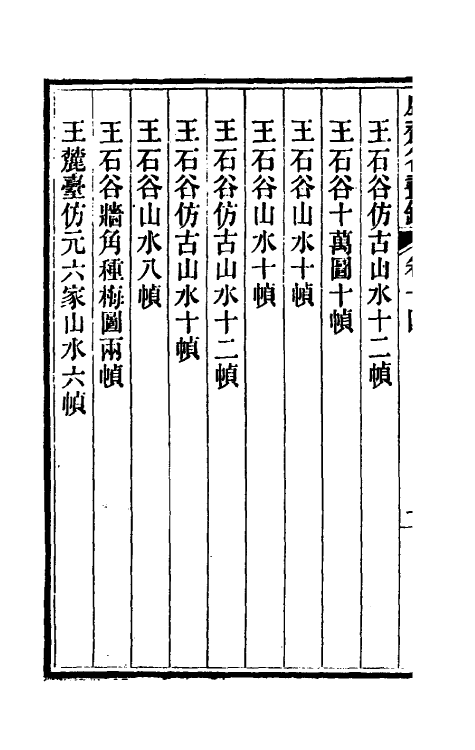 王石谷仿古山水十二幀
王石谷十萬圖十幀
王石谷山水十幀
王石谷山水十幀
王石谷仿古山水十二幀
王石谷仿古山水十幀
王石谷山水八幀
王石谷牆角種梅圖兩幀
王麓臺仿元六家山水六幀